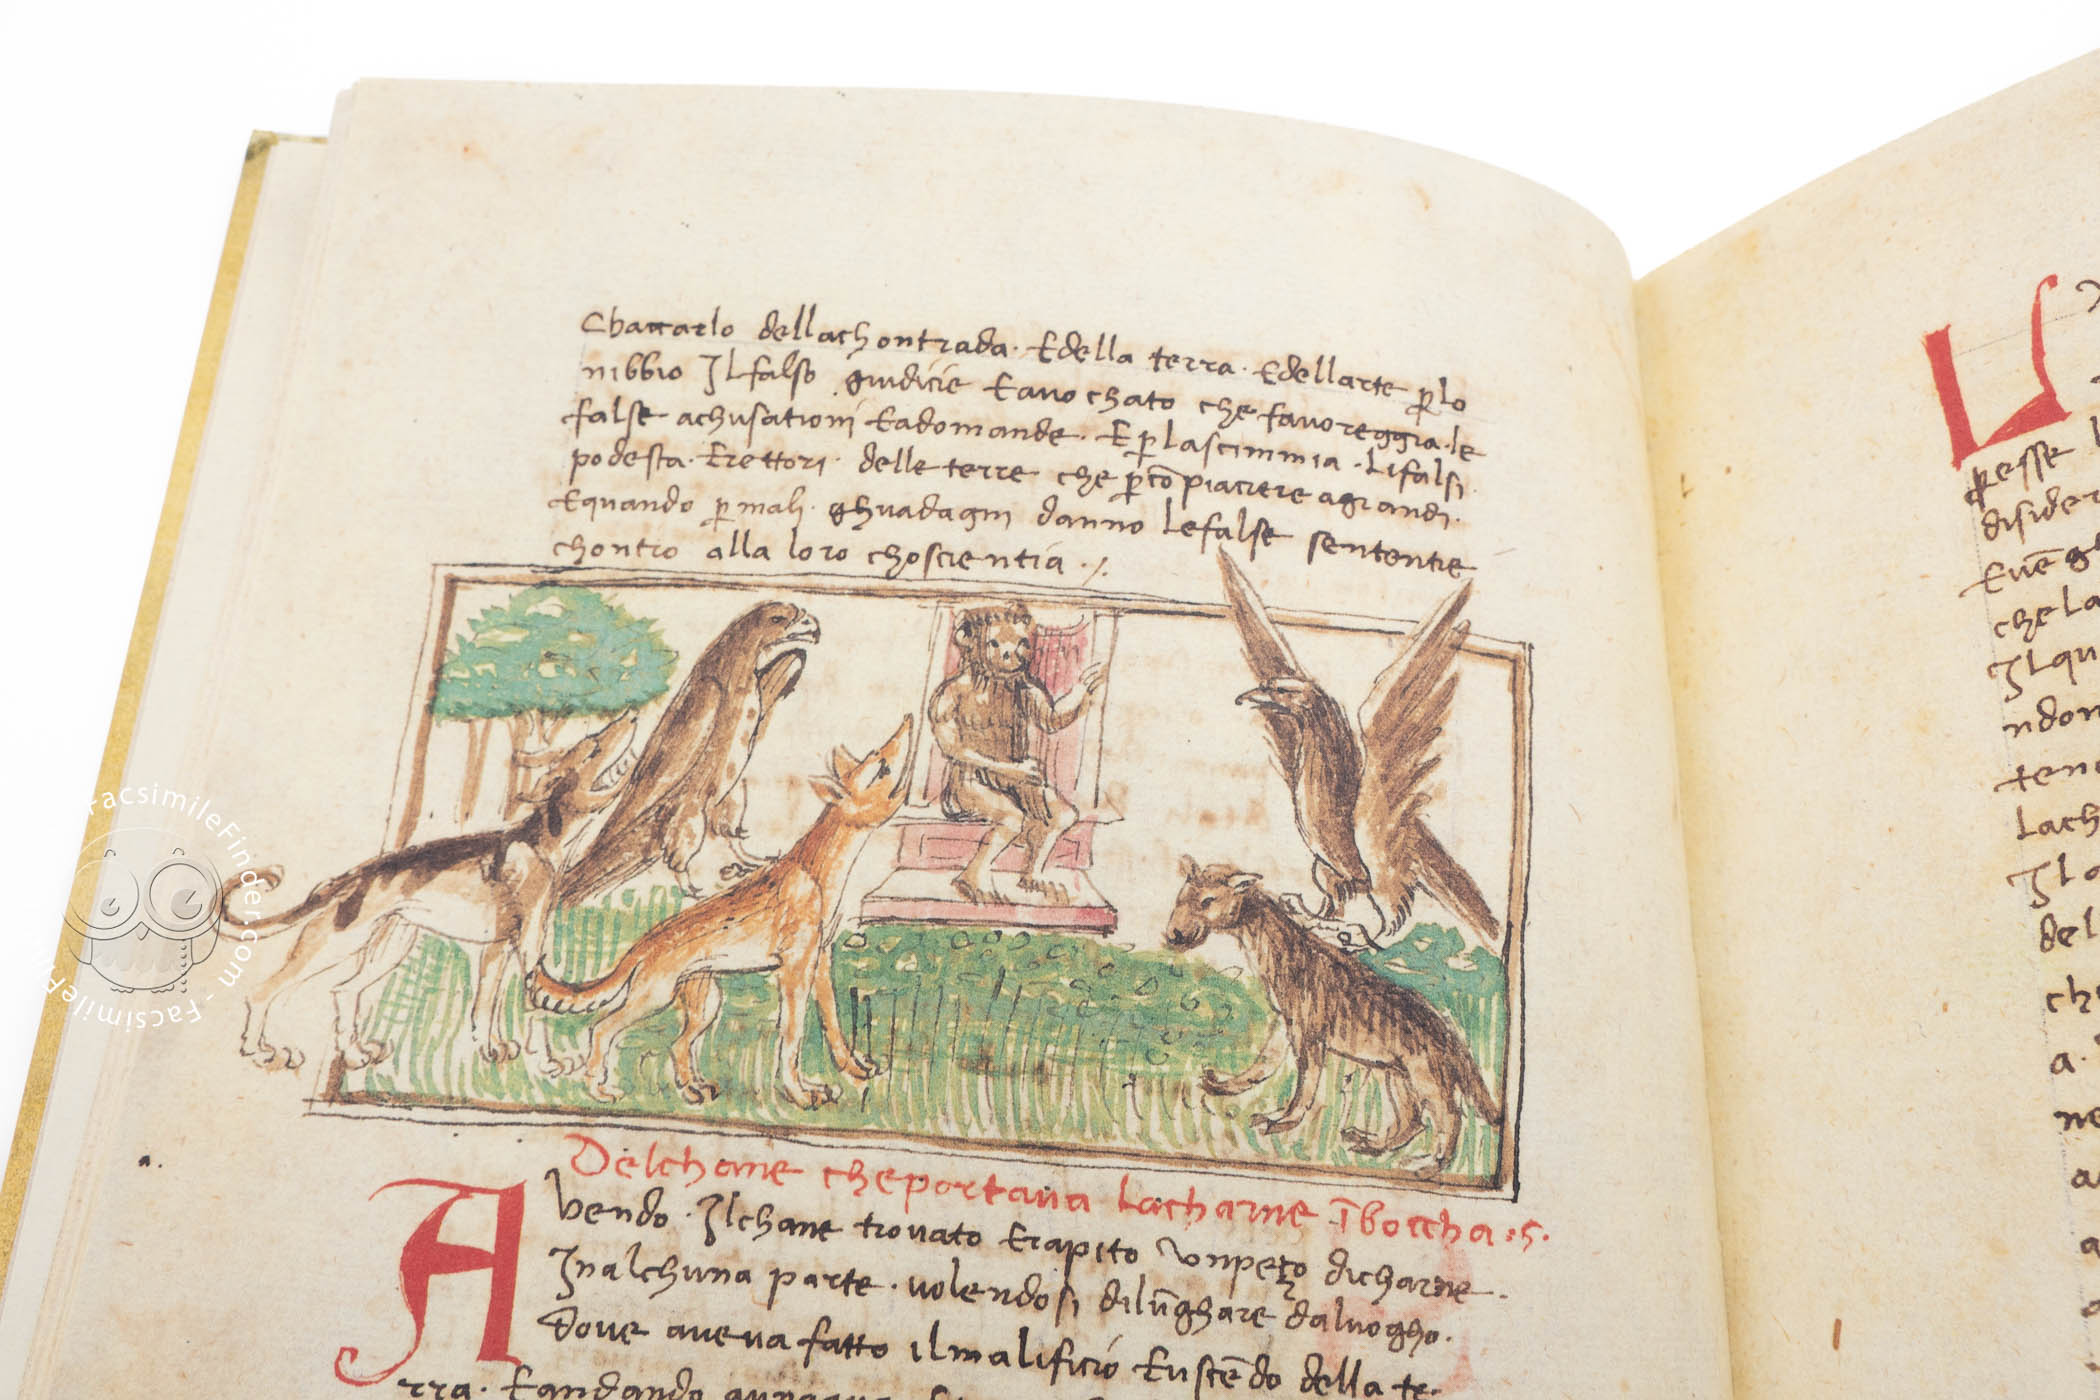 Chaccarlo dellachontrada. Edella terra. Edellarte plo
nibbio Ilfalso giudicie Eavochato che favoreggia.le
false achusationi Eadomande. Ep lascimmia. Lifalsi
podesta. Erettori. delle terre che pcōpiaciere agrandi.
Equando p mali. ghuadagni danno Lefalse sententie
chontro alla loro choscientia ./.
Delchane cheportava Lacharne ībocha .5.
Avendo. Ilchane trovato Erapito vnpezo dicharne.
Inalchuna parte. volendosi dilūghare daluogho.
Dove aveva fatto ilmalificio Euscēdo della te
rra. Eandando
U
pesse
disider
Evēgh
che La
Ilqu
ndon
tene
Lach
Il
del
che
a.
ne
a.
FacsimileFinder.com - FacsimileFinder.com